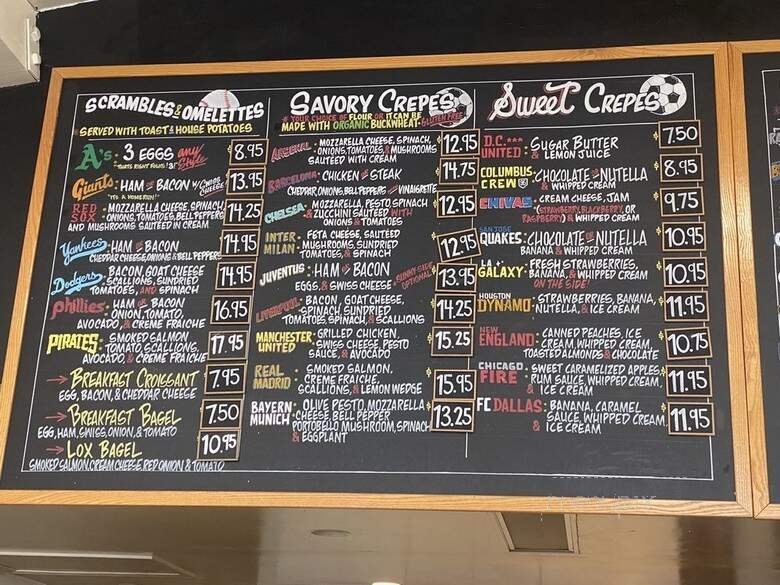 SCRAMBLES & OMELETTES
SERVED WITH TOAST & HOUSE POTATOES
A's: 3 EGGS any Style 8.95
"THATS RIGHT FOLKS! 3!"
Giants: HAM OR BACON W/ SWISS CHEESE 13.95
"IT'S A HOMERUN!"
RED SOX - MOZZARELLA CHEESE, SPINACH, ONIONS, TOMATOES, BELL PEPPERS 14.25
AND MUSHROOMS SAUTEED IN CREAM
Yankees - HAM OR BACON 14.95
CHEDDAR CHEESE, ONIONS & BELL PEPPERS
Dodgers - BACON, GOAT CHEESE, SCALLIONS, SUNDRIED TOMATOES, AND SPINACH 14.95
Phillies: HAM OR BACON 16.95
ONION, TOMATO,
AVOCADO, & CREME FRAICHE
PIRATES: SMOKED SALMON, TOMATO, SCALLIONS, 17.95
AVOCADO, & CREME FRAICHE
→ BREAKFAST CROISSANT 7.95
EGG, BACON, & CHEDDAR CHEESE
→ BREAKFAST BAGEL 7.50
EGG, HAM, SWISS, ONION, & TOMATO
→ LOX BAGEL 10.95
SMOKED SALMON, CREAM CHEESE, RED ONION & TOMATO
SAVORY CREPES
* YOUR CHOICE OF FLOUR OR IT CAN BE
MADE WITH ORGANIC BUCKWHEAT - GLUTEN FREE *
ARSENAL: MOZZARELLA CHEESE, SPINACH, 12.95
ONIONS, TOMATOES, & MUSHROOMS
SAUTEED WITH CREAM
BARCELONA: CHICKEN OR STEAK 14.75
CHEDDAR, ONIONS, BELL PEPPERS VINAIGRETTE
CHELSEA: MOZZARELLA, PESTO, SPINACH 12.95
& ZUCCHINI SAUTEED WITH
ONIONS & TOMATOES
INTER MILAN: FETA CHEESE, SAUTED 12.95
MUSHROOMS, SUNDRIED
TOMATOES, & SPINACH
JUVENTUS: HAM OR BACON 13.95
EGGS, & SWISS CHEESE * SUNNY SIDE OPTIONAL *
LIVERPOOL: BACON, GOAT CHEESE, 14.25
SPINACH, SUNDRIED
TOMATOES, SPINACH, & SCALLIONS
MANCHESTER UNITED: GRILLED CHICKEN, 15.25
SWISS CHEESE, PESTO
SAUCE, & AVOCADO
REAL MADRID: SMOKED SALMON, 15.95
CREME FRAICHE,
SCALLIONS, & LEMON WEDGE
BAYERN MUNICH: OLIVE PESTO, MOZZARELLA 13.25
CHEESE, BELL PEPPER
PORTOBELLO MUSHROOM, SPINACH
& EGGPLANT
Sweet CREPES
D.C. UNITED: SUGAR BUTTER & LEMON JUICE 7.50
COLUMBUS CREW: CHOCOLATE OR NUTELLA & WHIPPED CREAM 8.95
CHIVAS: CREAM CHEESE, JAM 9.75
(STRAWBERRY, BLACKBERRY, OR
RASPBERRY) & WHIPPED CREAM
SAN JOSE QUAKES: CHOCOLATE OR NUTELLA 10.95
BANANA & WHIPPED CREAM
LA GALAXY: FRESH STRAWBERRIES, 10.95
BANANA, & WHIPPED CREAM
ON THE SIDE!
HOUSTON DYNAMO: STRAWBERRIES, BANANA, NUTELLA, & ICE CREAM 11.95
NEW ENGLAND: CANNED PEACHES, ICE 10.75
CREAM, WHIPPED CREAM,
TOASTED ALMONDS & CHOCOLATE
CHICAGO FIRE: SWEET CARAMELIZED APPLES, 11.95
RUM SAUCE, WHIPPED CREAM,
& ICE CREAM
FC DALLAS: BANANA, CARAMEL 11.95
SAUCE, WHIPPED CREAM
& ICE CREAM